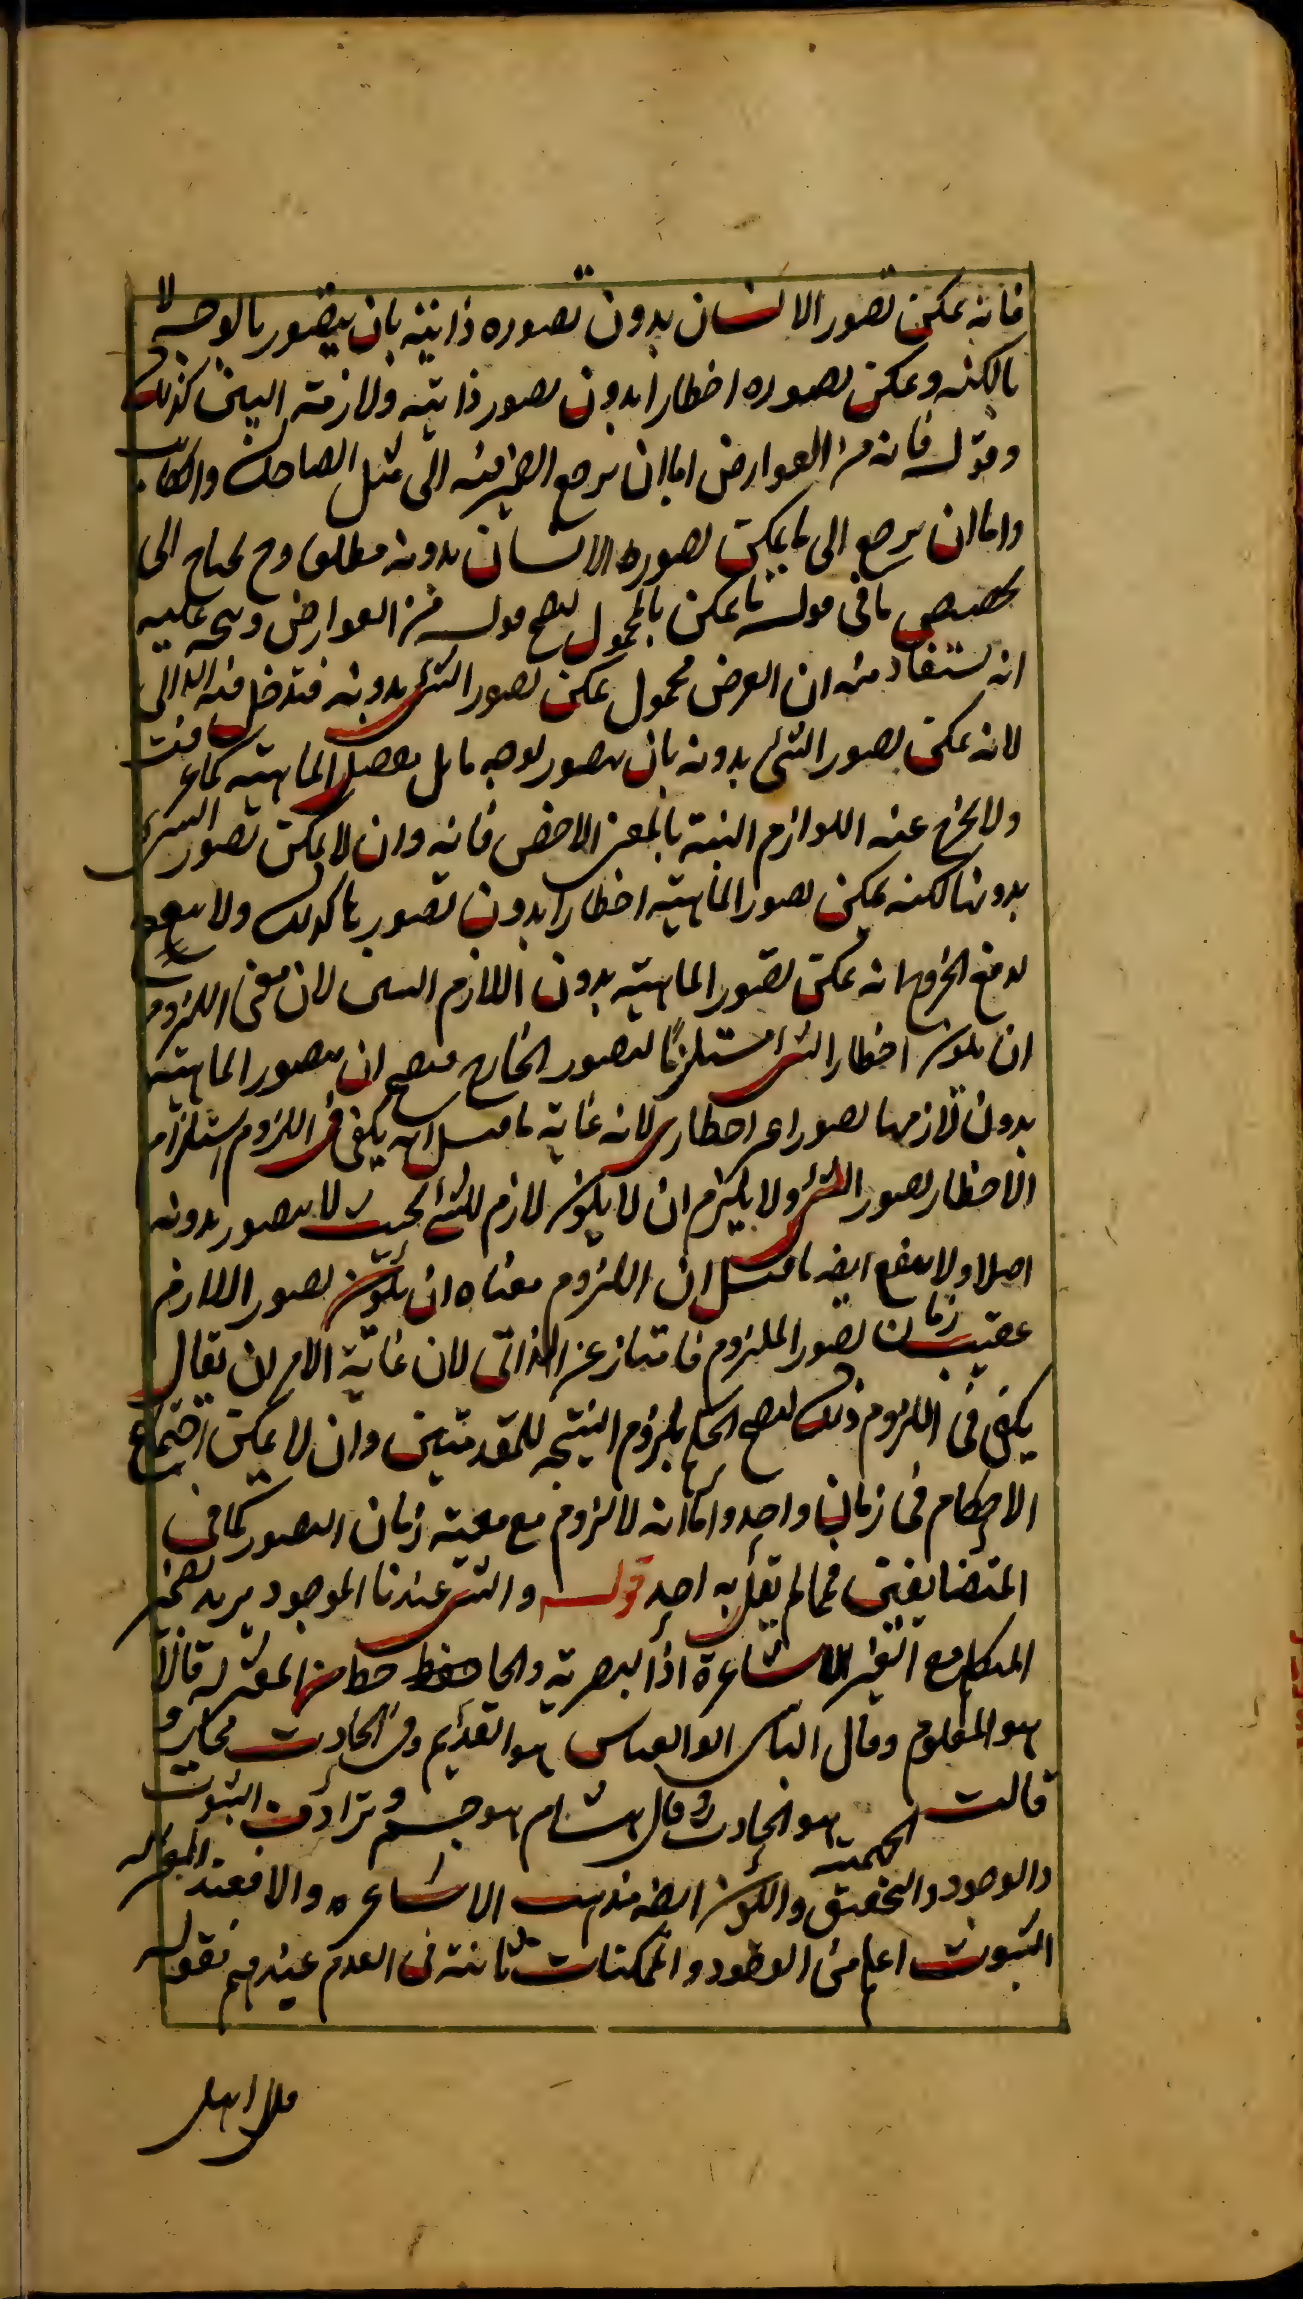 فانه يمكن تصور الانسان بدون تصوره ذاتيته بان يتصور بالوجه لا
بالكنه ويمكن تصوره اخطارا بدون تصور ذاتيته ولازمته البين كذلك
وقوله فانه من العوارض اما ان يرجع الضمير فيه الى مثل الضاحك والكاتب
واما ان يرجع الى ما يمكن تصوره الانسان بدونه مطلقا وح يحتاج الى
تخصيص ما في قوله ما يمكن بالمحمول ليصح قوله من العوارض ويتجه عليه
انه يستفاد منه ان العرض محمول يمكن تصور الشئ بدونه فتدخل فيه الذاتي
لانه يمكن تصور الشئ بدونه بان يتصور بوجه ما بل مفصل الماهية كما عرفت
ولا يخرج عنه اللوازم البينة بالمعنى الاخص فانه وان لا يمكن تصور الشئ
بدونها لكنه يمكن تصور الماهية اخطارا بدون تصورها كذلك ولا
لدفع الخروج انه يمكن تصور الماهية بدون اللازم البين لان معنى اللزوم
ان يكون اخطار الشئ مستلزما لتصور الخارج فيصح ان يتصور الماهية
بدون لازمها تصورا غير اخطاري لانه غاية ما قيل انه يكفي في اللزوم استلزام
الاخطار تصور الشئ ولا يلزم ان لا يكون لازم للشئ بحيث لا يتصور بدونه
اصلا ولا ينفع ايضا ما قيل ان اللزوم معناه ان يكون تصور اللازم
عقيب زمان تصور الملزوم فامتاز عن الذاتي لان غاية الامر ان يقال
يكفي في اللزوم ذلك ليصح الحكم بلزوم النتيجة للمقدمتين وان لا يمكن اجتماع
الاحكام في زمان واحد واما انه لا لزوم مع معية زمان التصور كما في
المتضايفين فمما لم يقل به احد قوله والشئ عندنا الموجود يريد
المتكلم مع الغير الاشاعرة اذ البصرية والجاحظ من المعتزلة قالوا
هو المعلوم وقال الناشي ابو العباس هو القديم وفي الحادث مجاز و
قالت الجهمية هو الحادث وقال هشام هو جسم وترادف الثبوت
والوجود والتحقيق والكون ايضا مذهب الاشاعره والا فعند المعتزلة
الثبوت اعم من الوجود والممكنات ثابتة في العدم عندهم فقوله